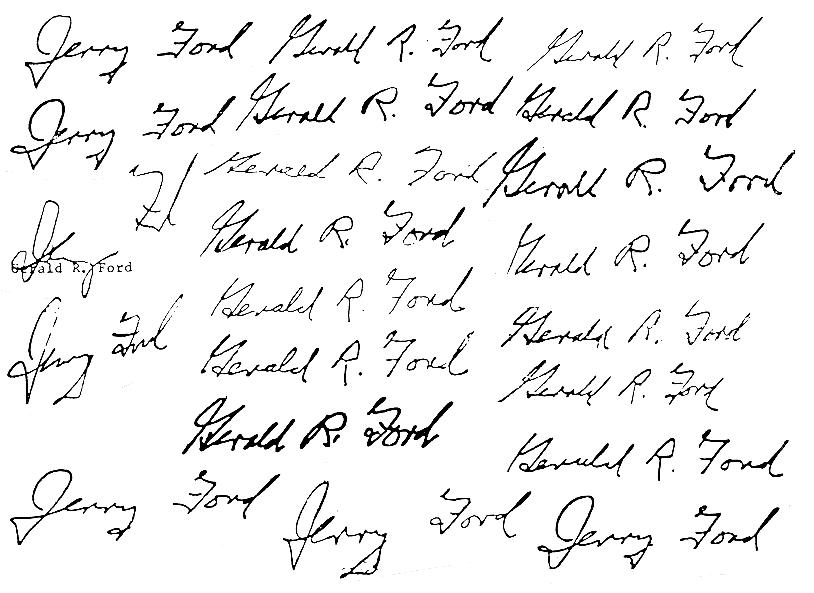 Jerry Ford Gerald R. Ford Gerald R. Ford
Jerry Ford Gerald R. Ford Gerald R. Ford
Gerald R. Ford Gerald R. Ford
Jerry Ford
Gerald R. Ford
Gerald R. Ford Gerald R. Ford
Gerald R. Ford Gerald R. Ford
Jerry Ford Gerald R. Ford Gerald R. Ford
Gerald R. Ford Gerald R. Ford
Jerry Ford Jerry Ford Jerry Ford